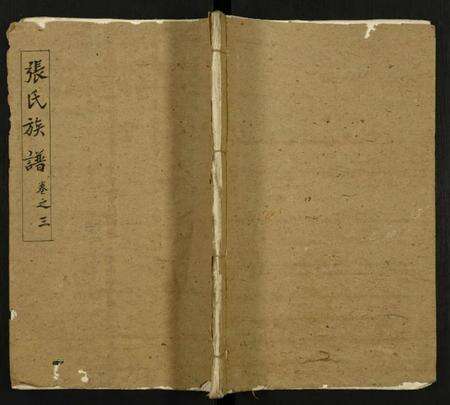 張氏族譜 卷之三